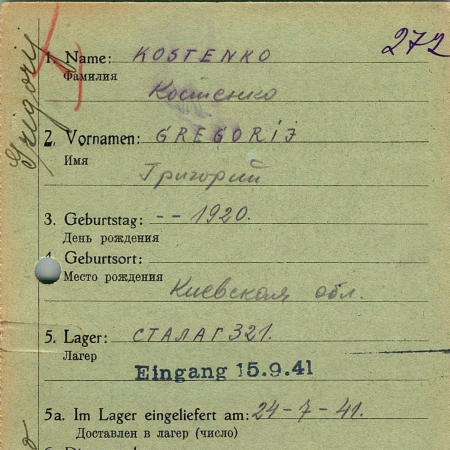 272
Grigorij
1. Name: KOSTENKO
Фамилия
Костенко
2. Vornamen: GREGORIJ
Имя
Григорий
3. Geburtstag: -- 1920.
День рождения
4. Geburtsort:
Место рождения
Киевская обл.
5. Lager: СТАЛАГ 321.
Лагер
Eingang 15.9.41
5a. Im Lager eingeliefert am: 24-7-41.
Доставлен в лагер (число)